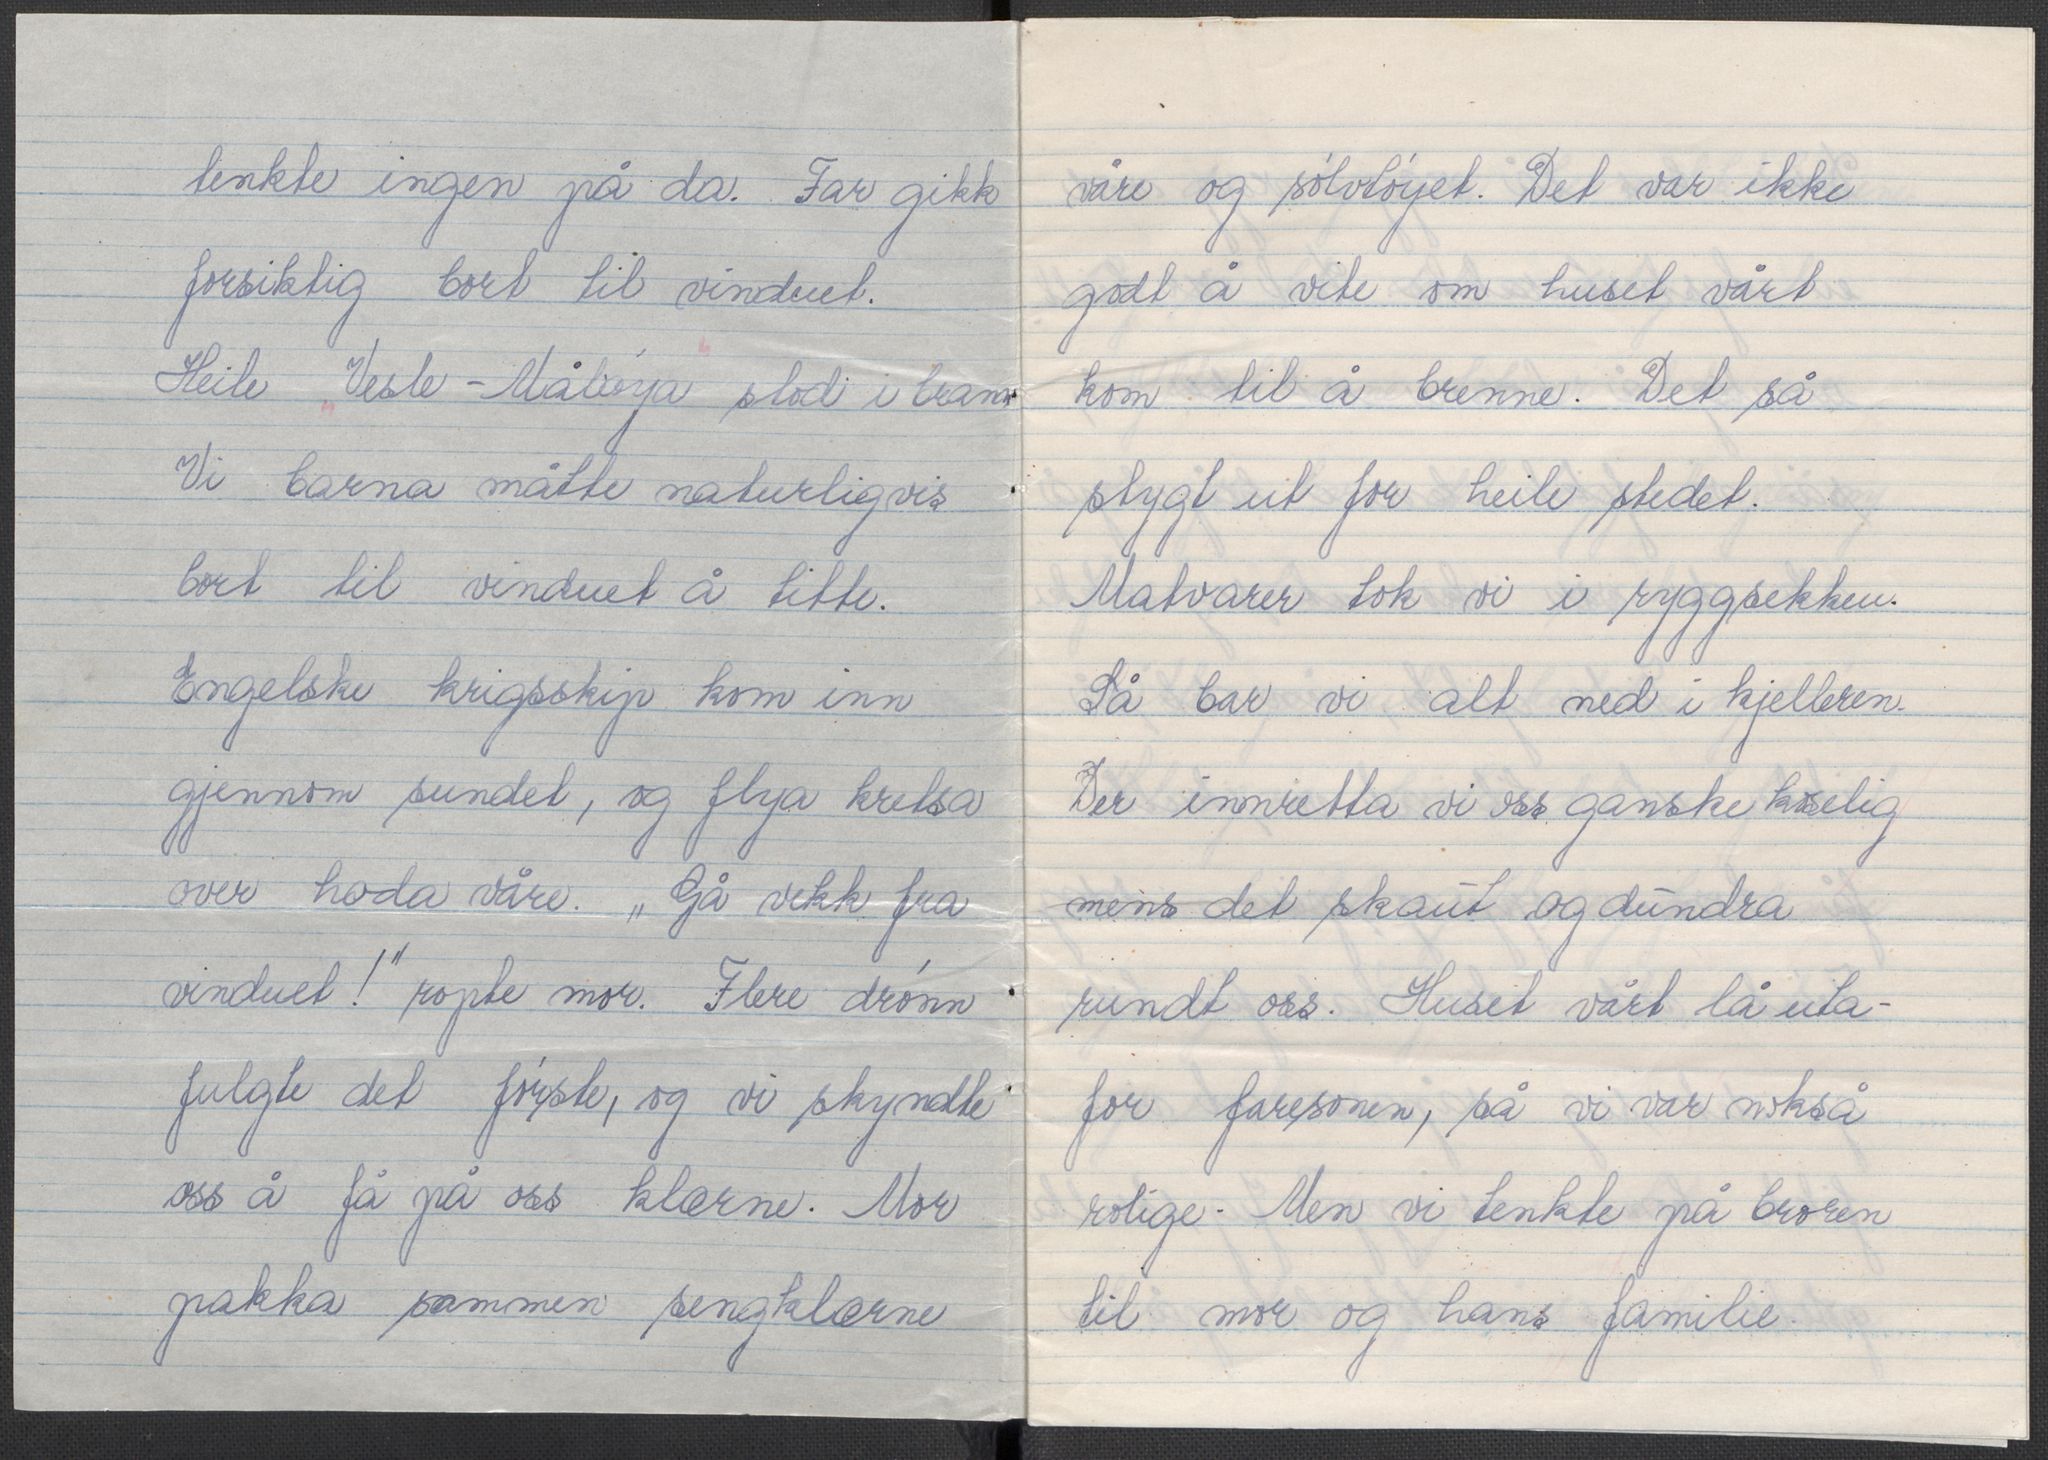 tenkte ingen på da. Far gikk
forsiktig bort til vinduet.
Heile „Vesle-Måløya" stod i brann.
Vi barna måtte naturligvis
bort til vinduet å titte.
Engelske krigsskip kom inn
gjennom sundet, og flya kretsa
over hoda våre. „Gå vekk fra
vinduet!" ropte mor. Flere drønn
fulgte det første, og vi skyndte
oss å få på oss klærne. Mor
pakka sammen sengklærne
våre og sølvtøyet. Det var ikke
godt å vite om huset vårt
kom til å brenne. Det så
stygt ut for heile stedet.
Matvarer tok vi i ryggsekken.
Så bar vi alt ned i kjelleren.
Der innretta vi oss ganske koselig
mens det skaut og dundra
rundt oss. Huset vårt lå uta-
for faresonen, så vi var nokså
rolige. Men vi tenkte på broren
til mor og hans familie.